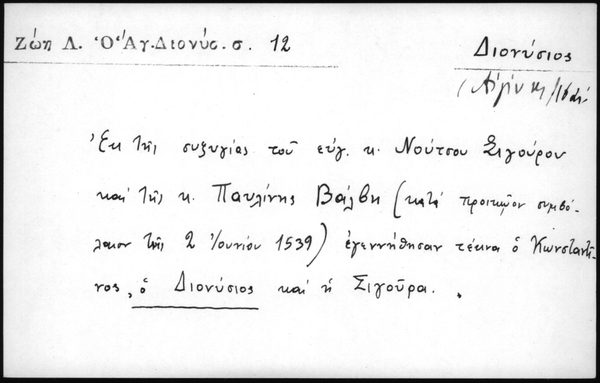 Ζώη Λ. Ὁ Ἅγ. Διονύσ. σ. 12
Διονύσιος
(Αἰγίνης/
Ἐκ τῆς συζυγίας τοῦ εὐγ. κ. Νούτσου Σιγούρου
καὶ τῆς κ. Παυλίνης Βάλβη (κατά προικῷον συμβό-
λαιον τῆς 2 Ἰουνίου 1539) ἐγεννήθησαν τέκνα ὁ Κωνσταντῖ-
νος, ὁ Διονύσιος καὶ ἡ Σιγούρα.